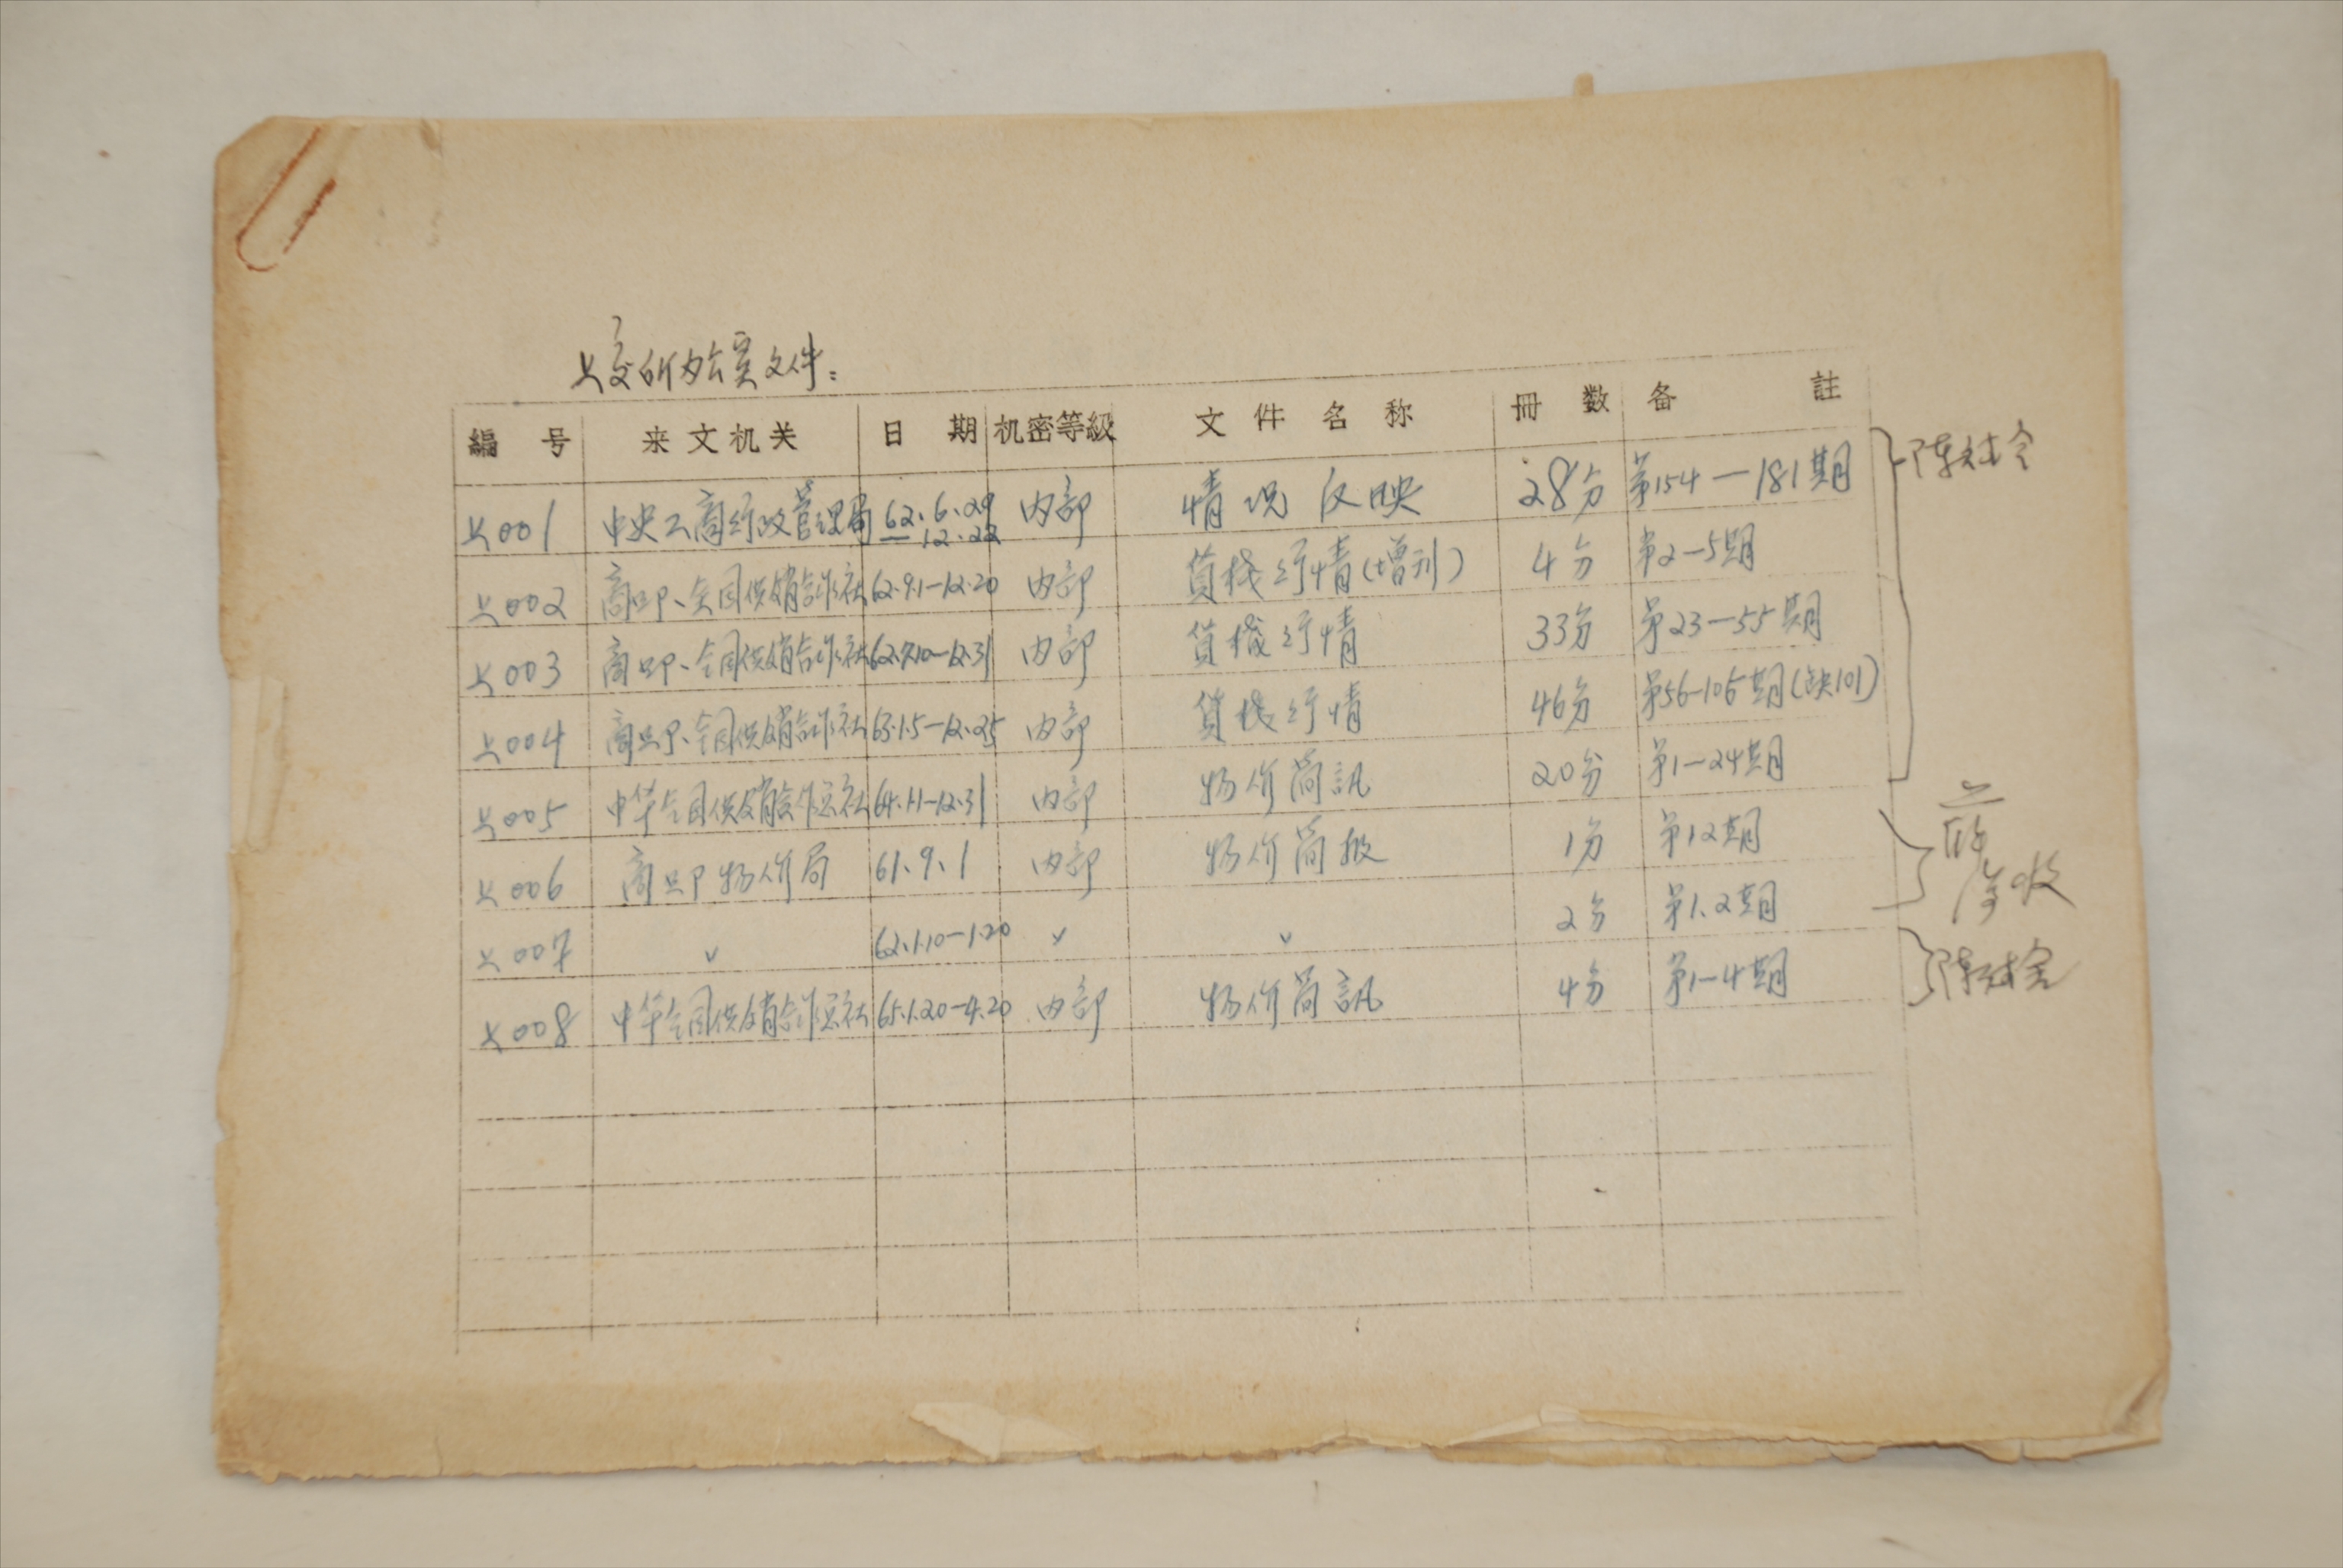 上交所内台賬文件：
編号 来文机关 日期 机密等級 文件名称 冊数 备註
上001 中央工商行政管理局 62.6.29—12.22 内部 情况反映 28分 第154—181期
上002 商业部、全国供销合作社 62.9.1—12.20 内部 貨栈行情(增刊) 4分 第2—5期
上003 商业部、全国供销合作社 62.9.10—12.31 内部 貨栈行情 33分 第23—55期
上004 商业部、全国供销合作社 63.1.5—12.25 内部 貨栈行情 46分 第56—105期(缺101)
上005 中华全国供销合作总社 64.1.1—12.31 内部 物价简訊 20分 第1—24期
上006 商业部物价局 61.9.1 内部 物价简报 1分 第12期
上007 〃 62.1.10—1.20 〃 〃 2分 第1.2期
上008 中华全国供销合作总社 65.1.20—4.20 内部 物价简訊 4分 第1—4期